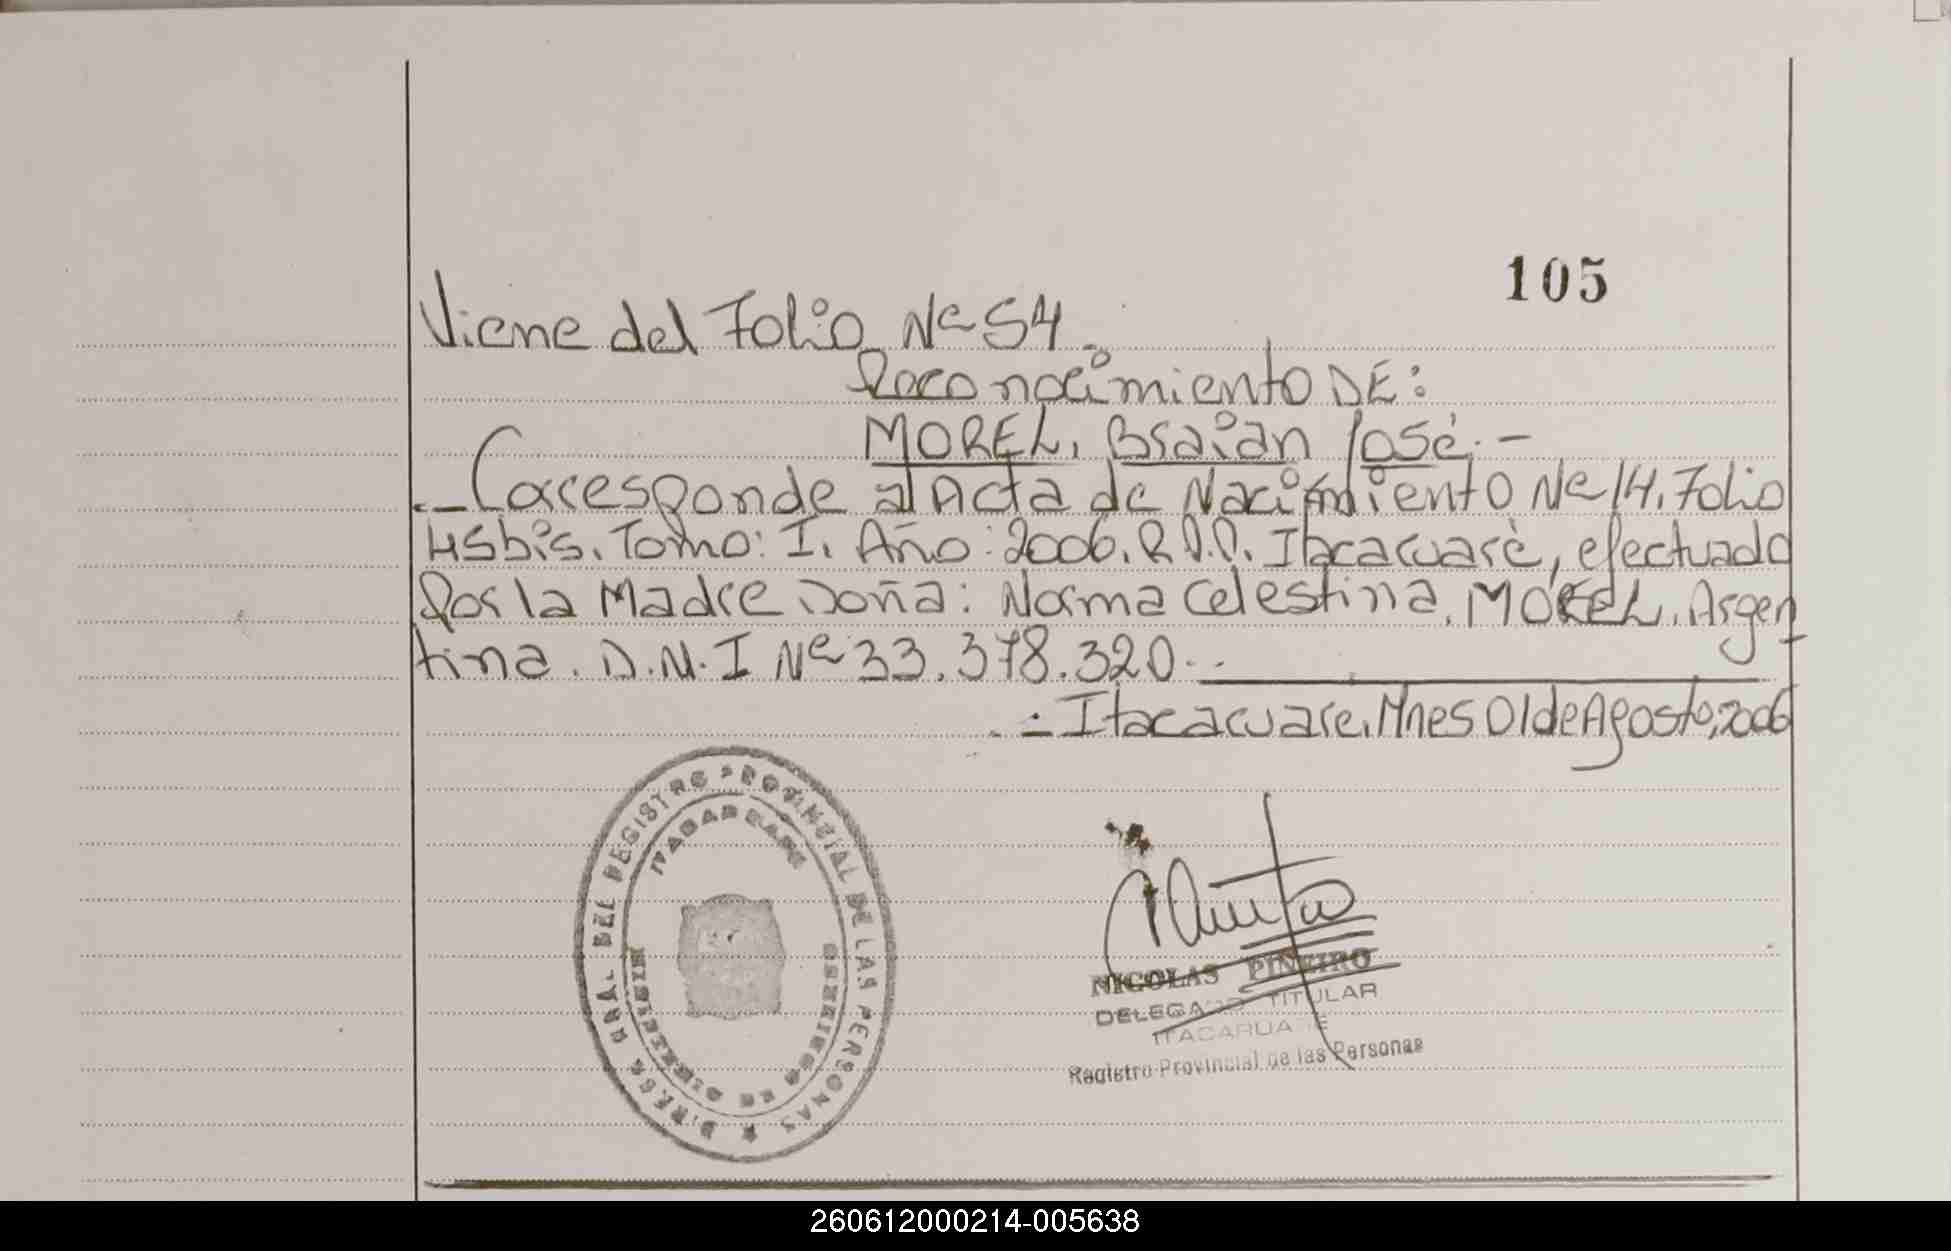 105
Viene del Folio Nº 54.
Reconocimiento DE:
MOREL, Braian José.-
._Corresponde al Acta de Nacimiento Nº 14. Folio
45bis. Tomo: I. Año: 2006. R.P.P. Itacaruaré, efectuado
por la Madre Doña: Norma Celestina. MOREL. Argen
tina. D.N.I Nº 33.378.320.-
.- Itacaruare, Mnes 01 de Agosto, 2006
DIREC. GRAL. DEL REGISTRO PROVINCIAL DE LAS PERSONAS
ITACARUARE
NICOLAS PIÑEIRO
DELEGADO TITULAR
ITACARUARE
Registro Provincial de las Personas
260612000214-005638